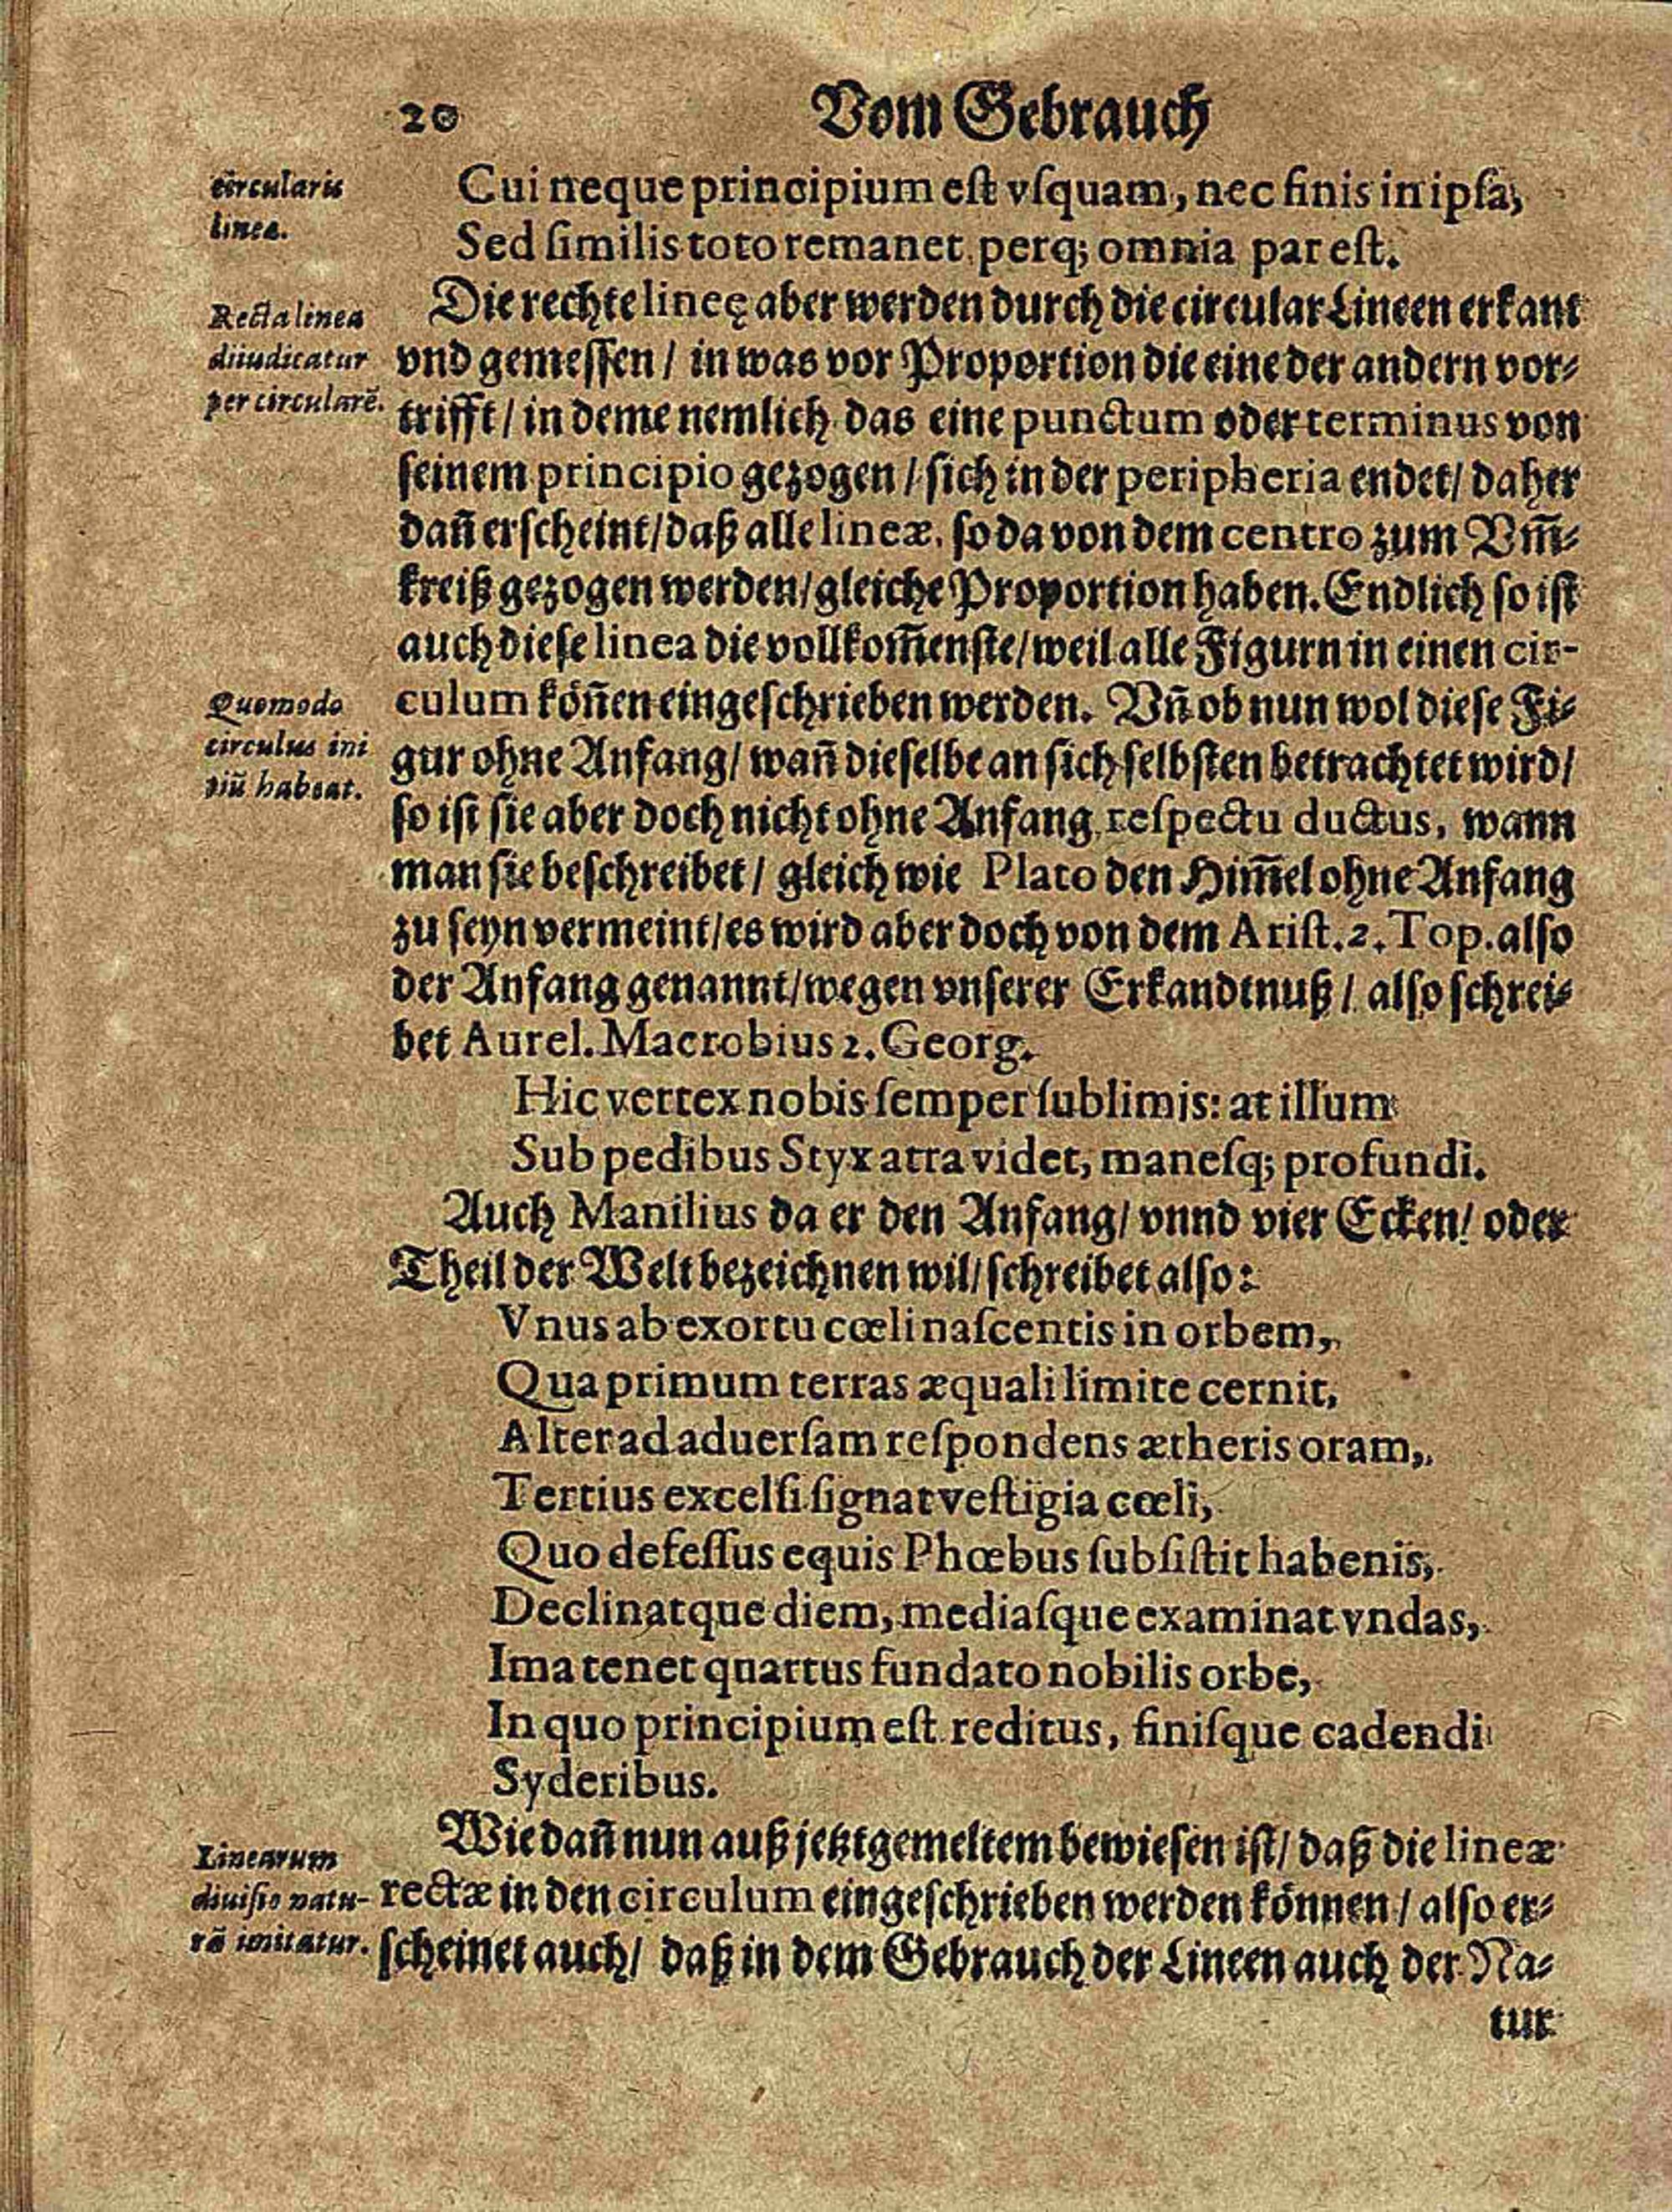 20
Vom Gebrauch
circularis
linea.
Cui neque principium eſt vſquam, nec finis in ipſa,
Sed ſimilis toto remanet perq; omnia par eſt.
Recta linea
diiudicatur
per circularē.
Die rechte lineę aber werden durch die circular Lineen erkant
vnd gemeſſen / in was vor Proportion die eine der andern vor⸗
trifft / in deme nemlich das eine punctum oder terminus von
ſeinem principio gezogen / ſich in der peripheria endet / daher
dañ erſcheint / daß alle lineæ, ſo da von dem centro zum Vm̃⸗
kreiß gezogen werden / gleiche Proportion haben. Endlich ſo iſt
auch dieſe linea die vollkom̃enſte / weil alle Figurn in einen cir-
Quomodo
circulus ini
tiū habeat.
culum köñen eingeſchrieben werden. Vñ ob nun wol dieſe Fi⸗
gur ohne Anfang / wañ dieſelbe an ſich ſelbſten betrachtet wird /
ſo iſt ſie aber doch nicht ohne Anfang reſpectu ductus, wann
man ſie beſchreibet / gleich wie Plato den Him̃el ohne Anfang
zu ſeyn vermeint / es wird aber doch von dem Ariſt. 2. Top. alſo
der Anfang genannt / wegen vnſerer Erkandtnuß / alſo ſchrei⸗
bet Aurel. Macrobius 2. Georg.
Hic vertex nobis ſemper ſublimis: at illum
Sub pedibus Styx atra videt, maneſq; profundi.
Auch Manilius da er den Anfang / vnnd vier Ecken / oder
Theil der Welt bezeichnen wil / ſchreibet alſo:
Vnus ab exortu cœli naſcentis in orbem,
Qua primum terras æquali limite cernit,
Alter ad aduerſam reſpondens ætheris oram,
Tertius excelſi ſignat veſtigia cœli,
Quo defeſſus equis Phœbus ſubſiſtit habenis,
Declinatque diem, mediaſque examinat vndas,
Ima tenet quartus fundato nobilis orbe,
In quo principium eſt reditus, finiſque cadendi
Syderibus.
Linearum
diuiſio natu-
rā imitatur.
Wie dañ nun auß jetztgemeltem bewieſen iſt / daß die lineæ
rectæ in den circulum eingeſchrieben werden können / alſo er⸗
ſcheinet auch / daß in dem Gebrauch der Lineen auch der Na⸗
tur